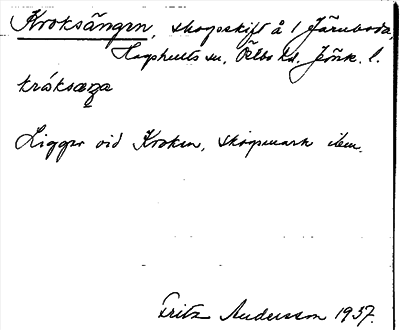 Kroksängen, skogsskift å 1 Järnboda,
Hagshults sn, Östbo hd. Jönk. l.
kråksæŋa
Ligger vid Kroken, skogsmark ibm.
Fritz Andersson 1937.